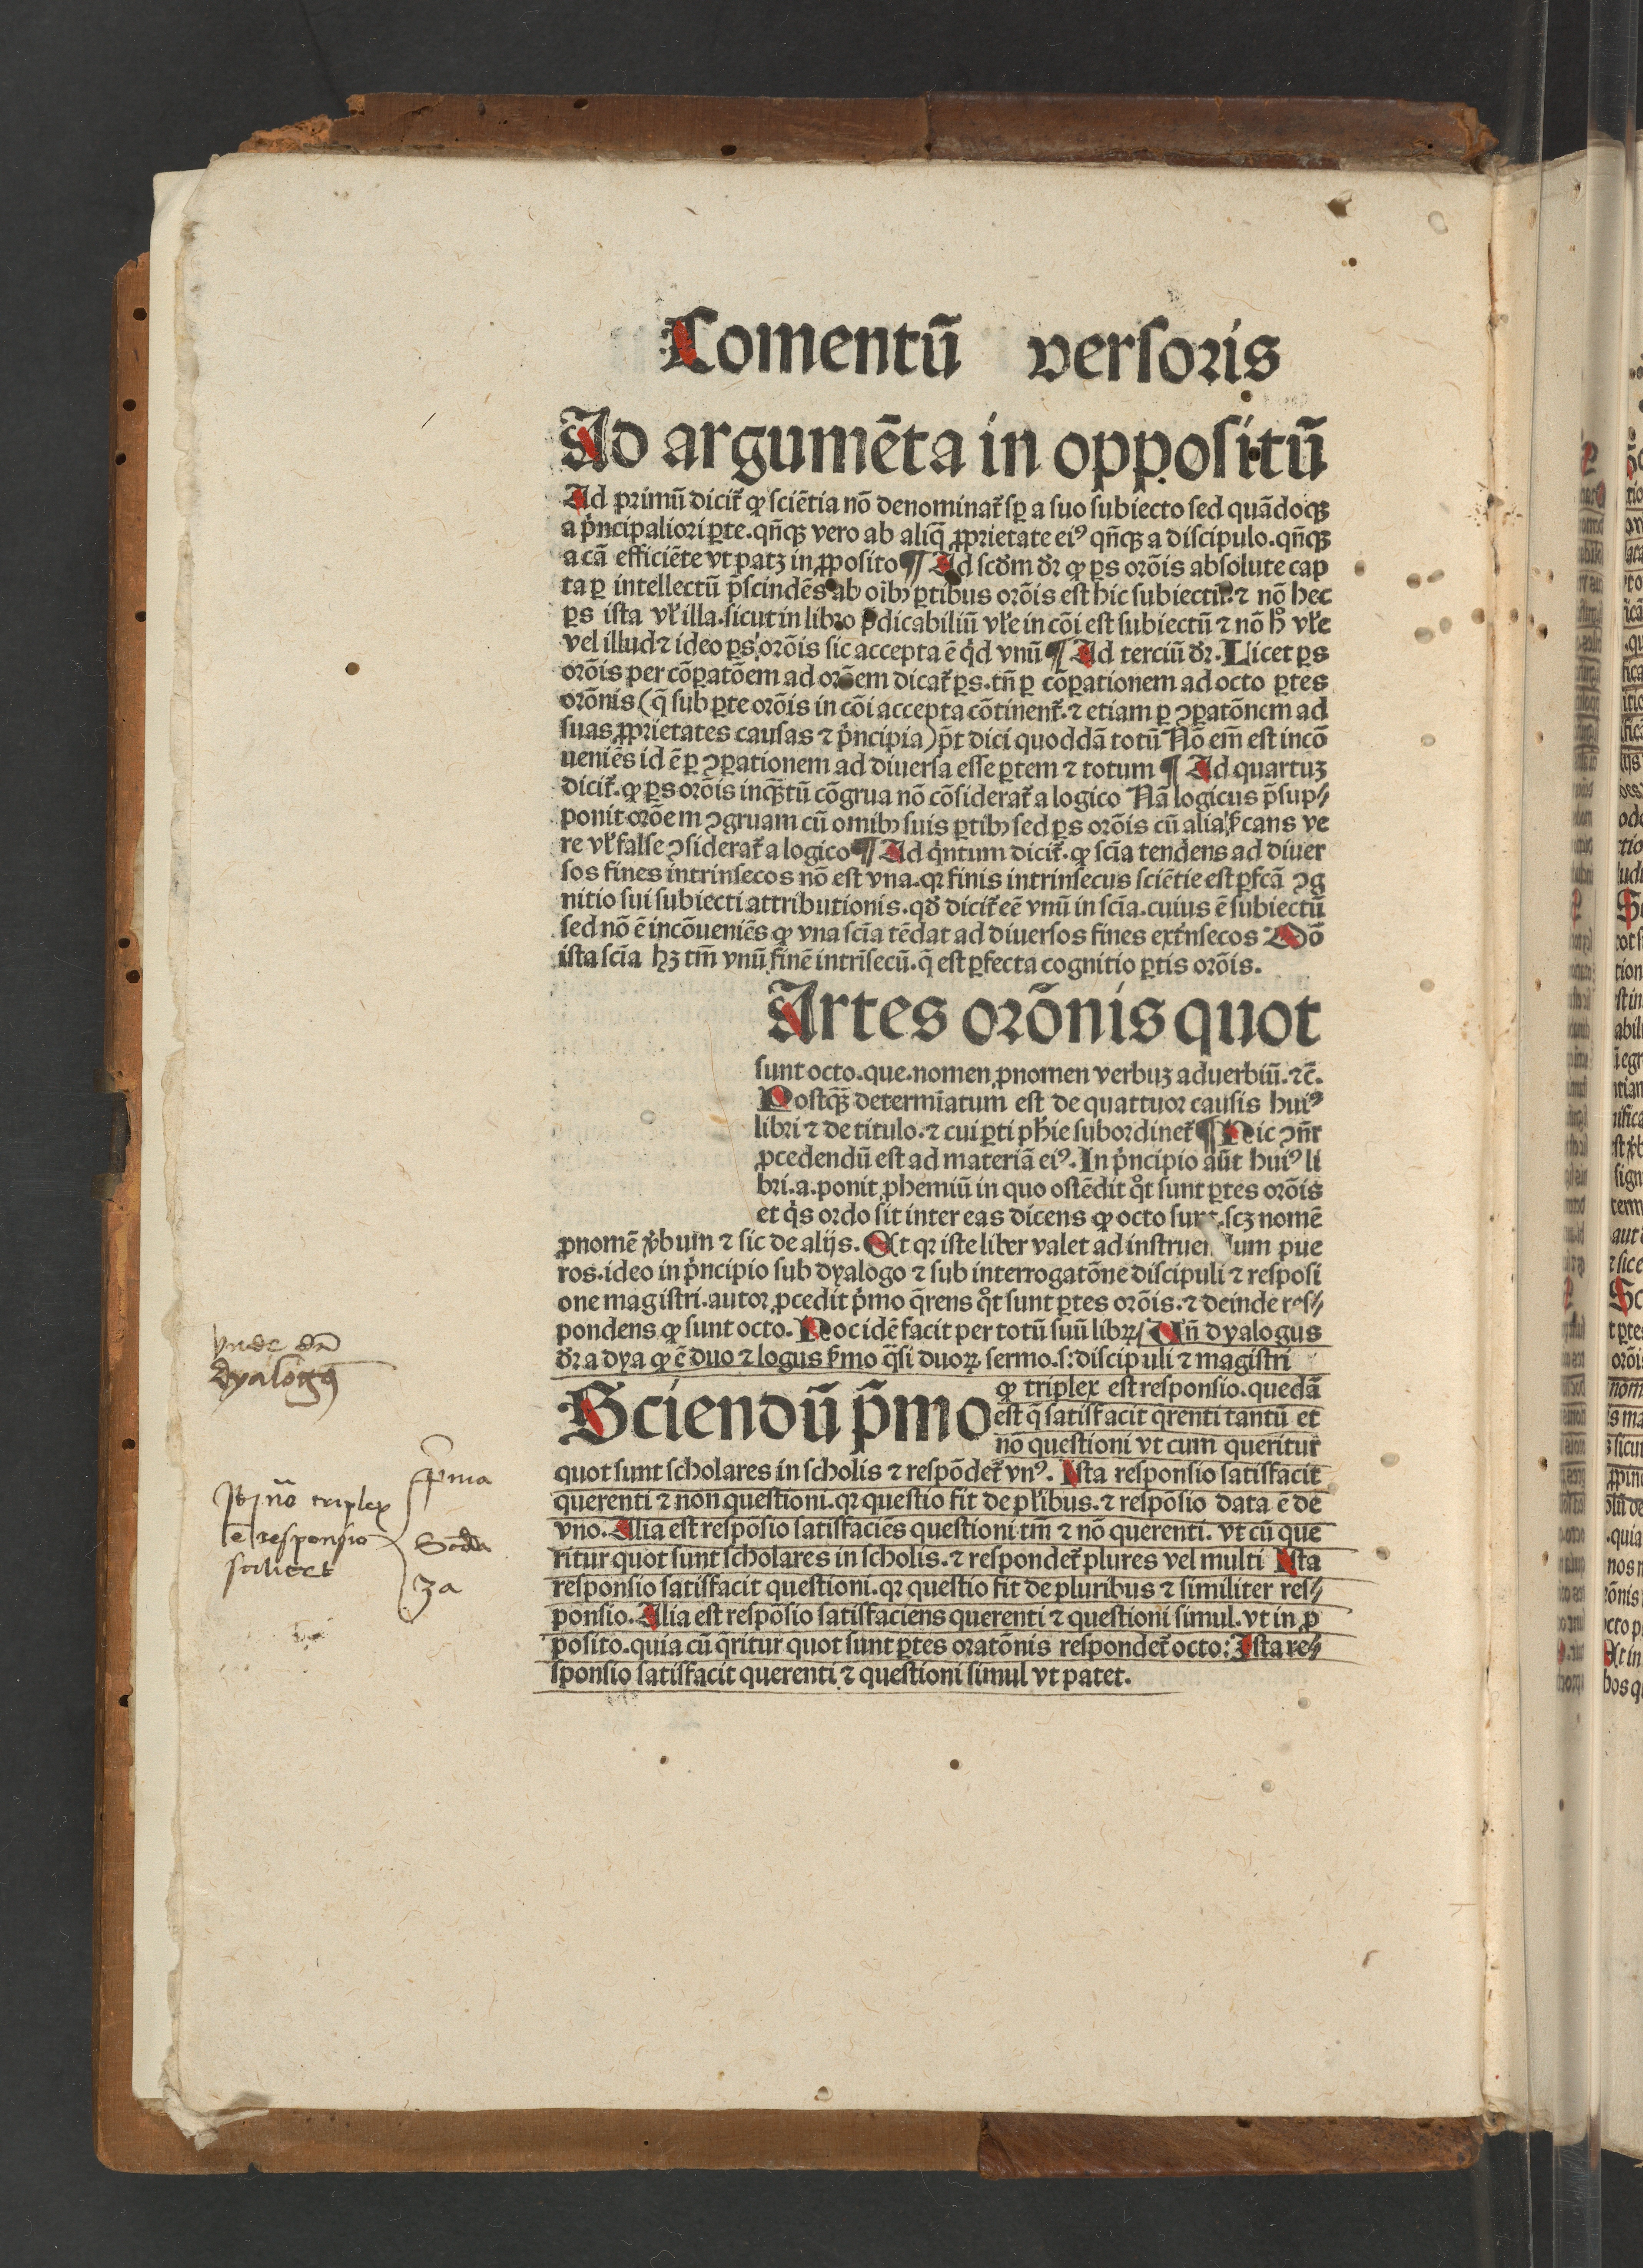 Comentū versoris
Ad argumēta in oppositū
Ad primū dicit᷑ ꝙ sciētia nō denominat᷑ sꝑ a suo subiecto sed quādoqꝫ
a pͥncipaliori ꝑte.qn̄qꝫ vero ab aliq̄ ꝓprietate eiꝰ qn̄qꝫ a discipulo.qn̄qꝫ
a cā efficiēte vt patꝫ in ꝓposito ¶ Ad scd̓m dr̄ ꝙ ꝑs orōis absolute cap
ta ꝑ intellectū p̄scindēs ab oībꝫ ꝑtibus orōis est hic subiectū.⁊ nō hec
ꝑs ista vl̓ illa.sicut in libro p̄dicabiliū vl̓e in cōi est subiectū ⁊ nō hͦ vl̓e
vel illud ⁊ ideo ꝑs orōis sic accepta ē qͥd vnū ¶ Ad terciū dr̄.Licet ꝑs
orōis per cōꝑatōem ad orōem dicat᷑ ꝑs.tn̄ ꝑ cōꝑationem ad octo ꝑtes
orōnis (q̄ sub ꝑte orōis in cōi accepta cōtinent᷑.⁊ etiam ꝑ ꝯꝑatōnem ad
suas ꝓprietates causas ⁊ pͥncipia) p̄t dici quoddā totū Nō em̄ est incō
ueniēs id ē ꝑ ꝯꝑationem ad diuersa esse ꝑtem ⁊ totum ¶ Ad quartuꝫ
dicit᷑.ꝙ ꝑs orōis inqꝫtū cōgrua nō cōsiderat᷑ a logico Nā logicus p̄sup⸗
ponit orōem ꝯgruam cū omibꝫ suis ꝑtibꝫ sed ꝑs orōis cū alia cans ve
re vl̓ false ꝯsiderat᷑ a logico ¶ Ad qͥntum dicit᷑.ꝙ scīa tendens ad diuer
sos fines intrinsecos nō est vna.qꝛ finis intrinsecus sciētie est ꝑfcā ꝯg
nitio sui subiecti attributionis.qd̓ dicit᷑ eē vnū in scīa.cuius ē subiectū
sed nō ē incōueniēs ꝙ vna scīa tēdat ad diuersos fines extͥnsecos Mō
ista scīa hꝫ tm̄ vnū finē intrīsecū.q̄ est ꝑfecta cognitio ꝑtis orōis.
Artes orōnis quot
sunt octo.que.nomen ꝓnomen verbuꝫ aduerbiū.⁊c̄.
Postqꝫ determīatum est de quattuor causis huiꝰ
libri ⁊ de titulo.⁊ cui ꝑti ph̓ie subordinet᷑ ¶ Hic ꝯn̄r
ꝓcedendū est ad materiā eiꝰ.In pͥncipio aūt huiꝰ li
bri.a.ponit ꝓhemiū in quo ostēdit qͦt sunt ꝑtes orōis
et qͥs ordo sit inter eas dicens ꝙ octo sunt.scꝫ nomē
ꝓnomē v̓bum ⁊ sic de alijs.Et qꝛ iste liber valet ad instruendum pue
ros.ideo in pͥncipio sub dyalogo ⁊ sub interrogatōne discipuli ⁊ resposi
one magistri.autor ꝓcedit pͥmo q̄rens qͦt sunt ꝑtes orōis.⁊ deinde res⸗
pondens ꝙ sunt octo.Hoc idē facit per totū suū libꝝ/ Vn̄ dyalogus
dr̄ a dya ꝙ ē duo ⁊ logus s̓mo q̄si duoꝝ sermo.s:discipuli ⁊ magistri
Sciendū p̄mo ꝙ triplex est responsio.quedā
est q̄ satisfacit q̄renti tantū et
nō questioni vt cum queritur
quot sunt scholares in scholis ⁊ respōdet᷑ vnꝰ. Ista responsio satisfacit
querenti ⁊ non questioni.qꝛ questio fit de pl̓ibus.⁊ respōsio data ē de
vno.Alia est respōsio satisfaciēs questioni tm̄ ⁊ nō querenti.vt cū que
ritur quot sunt scholares in scholis.⁊ respondet᷑ plures vel multi Ista
responsio satisfacit questioni.qꝛ questio fit de pluribus ⁊ similiter res⸗
ponsio.Alia est respōsio satisfaciens querenti ⁊ questioni simul.vt in ꝓ
posito.quia cū q̄ritur quot sunt ꝑtes oratōnis respondet᷑ octo:Ista re⸗
sponsio satisfacit querenti ⁊ questioni simul vt patet.
vnde dr̄
dyalogꝰ
triplex
ē responsio
scilicet
pͥma
Scd̓a
3a